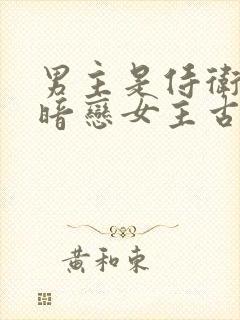 男主是侍衛
暗戀女主古
黃和東